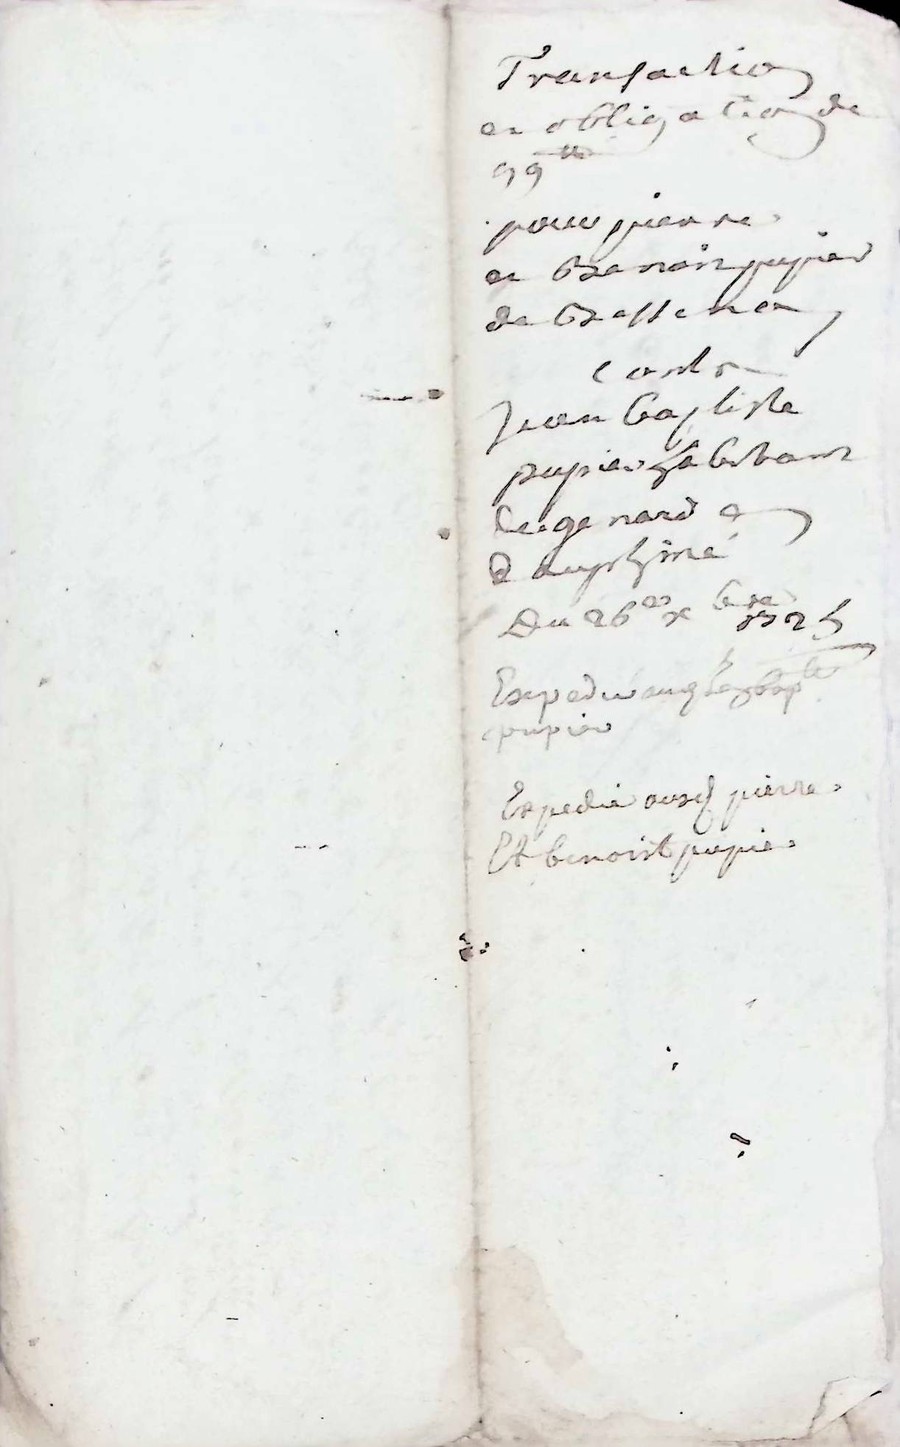 Transaction
et obligation de
99 tt
pour pierre
et Benoit pupier
de
contre
Jean baptiste
pupier habitant
de genard en
dauphiné
Du 26e xbre 1725
Expedie aud bapte
pupier
Expedié ausd pierre
Et benoist pupier